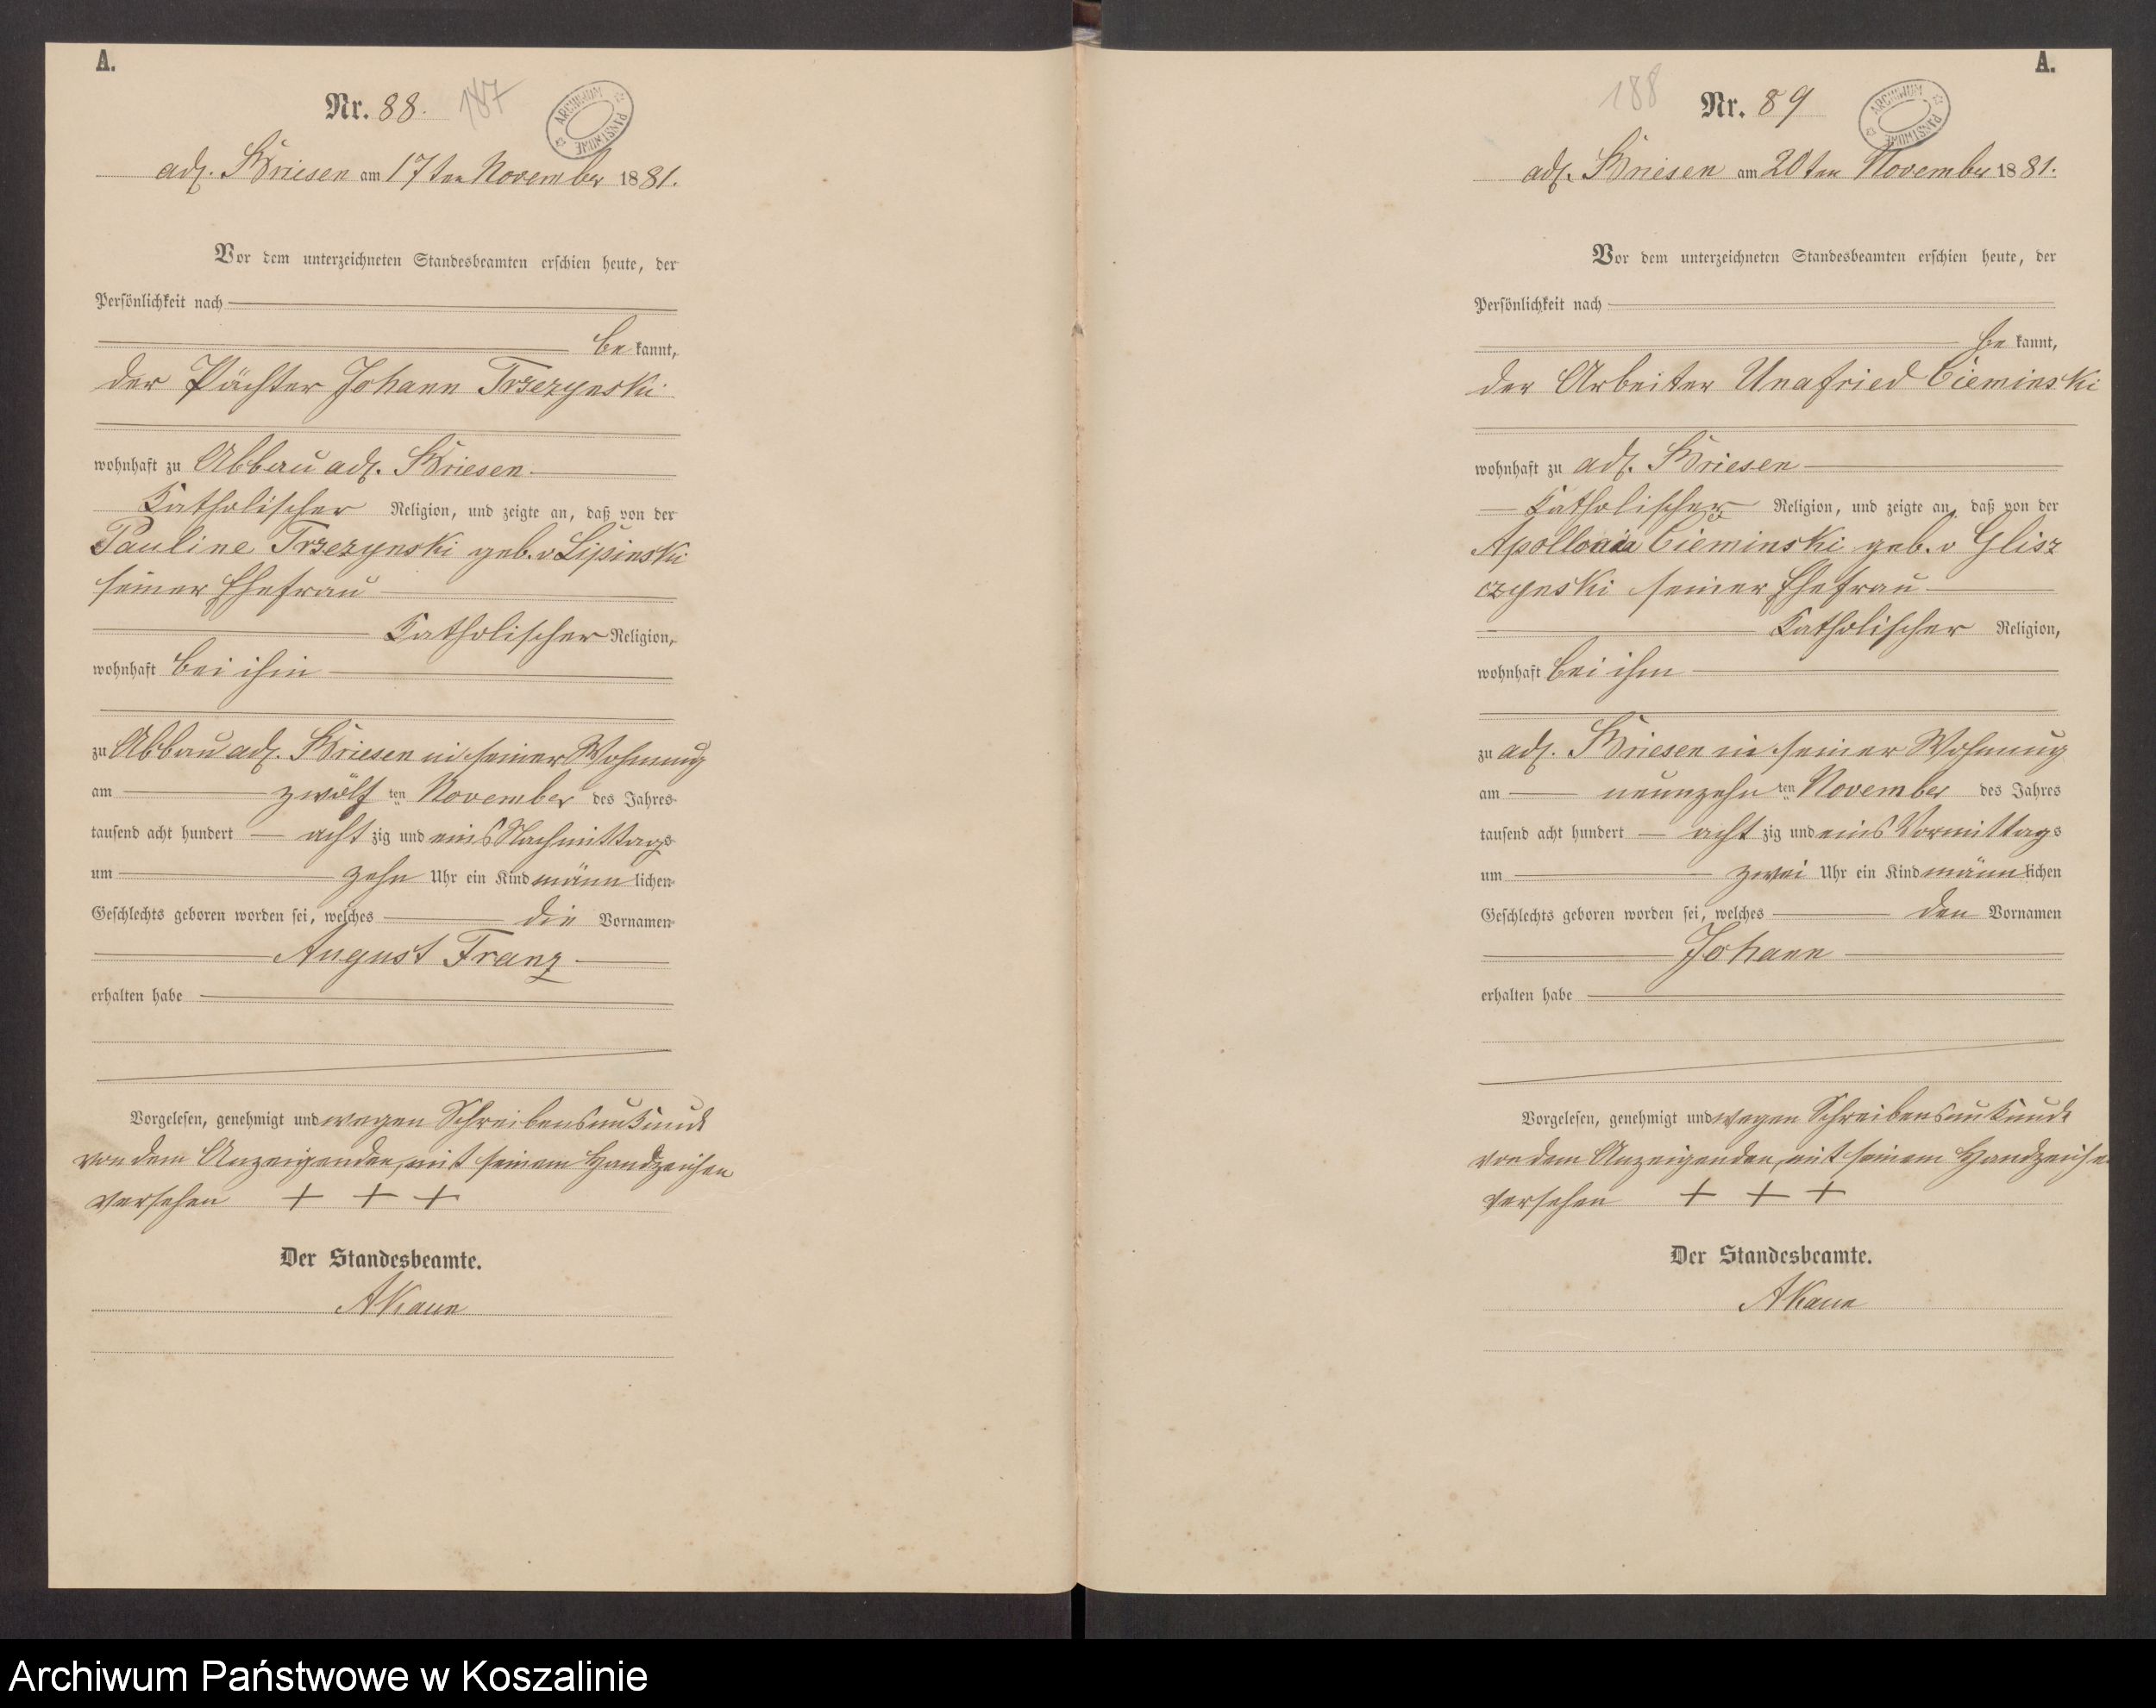 A.
Nr. 88. 187
ARCHIWUM PAŃSTWOWE
adl. Briesen am 17ten November 1881.
Vor dem unterzeichneten Standesbeamten erschien heute, der
Persönlichkeit nach
be kannt,
der Pächter Johann Trzezynski
wohnhaft zu Abbau adl. Briesen
Katholischer Religion, und zeigte an, daß von der
Pauline Trzezynski geb. v Lipinski
seiner Ehefrau
Katholischer Religion,
wohnhaft bei ihm
zu Abbau adl. Briesen in seiner Wohnung
am zwölf ten November des Jahres
tausend acht hundert acht zig und eins Nachmittags
um zehn Uhr ein Kind männ lichen
Geschlechts geboren worden sei, welches die Vornamen
August Franz
erhalten habe
Vorgelesen, genehmigt und wegen Schreibensunkunde
von dem Anzeigenden, mit seinem Handzeichen
versehen + + +
Der Standesbeamte.
A Kann
A.
188 Nr. 89
ARCHIWUM PAŃSTWOWE
adl. Briesen am 20ten November 1881.
Vor dem unterzeichneten Standesbeamten erschien heute, der
Persönlichkeit nach
be kannt,
der Arbeiter Unafried Cieminski
wohnhaft zu adl. Briesen
Katholischer Religion, und zeigte an, daß von der
Apollonia Cieminski geb. v Glisz
czynski seiner Ehefrau
Katholischer Religion,
wohnhaft bei ihm
zu adl. Briesen in seiner Wohnung
am neunzehn ten November des Jahres
tausend acht hundert acht zig und eins Vormittags
um zwei Uhr ein Kind männ lichen
Geschlechts geboren worden sei, welches den Vornamen
Johann
erhalten habe
Vorgelesen, genehmigt und wegen Schreibensunkunde
von dem Anzeigenden, mit seinem Handzeichen
versehen + + +
Der Standesbeamte.
A Kann
Archiwum Państwowe w Koszalinie